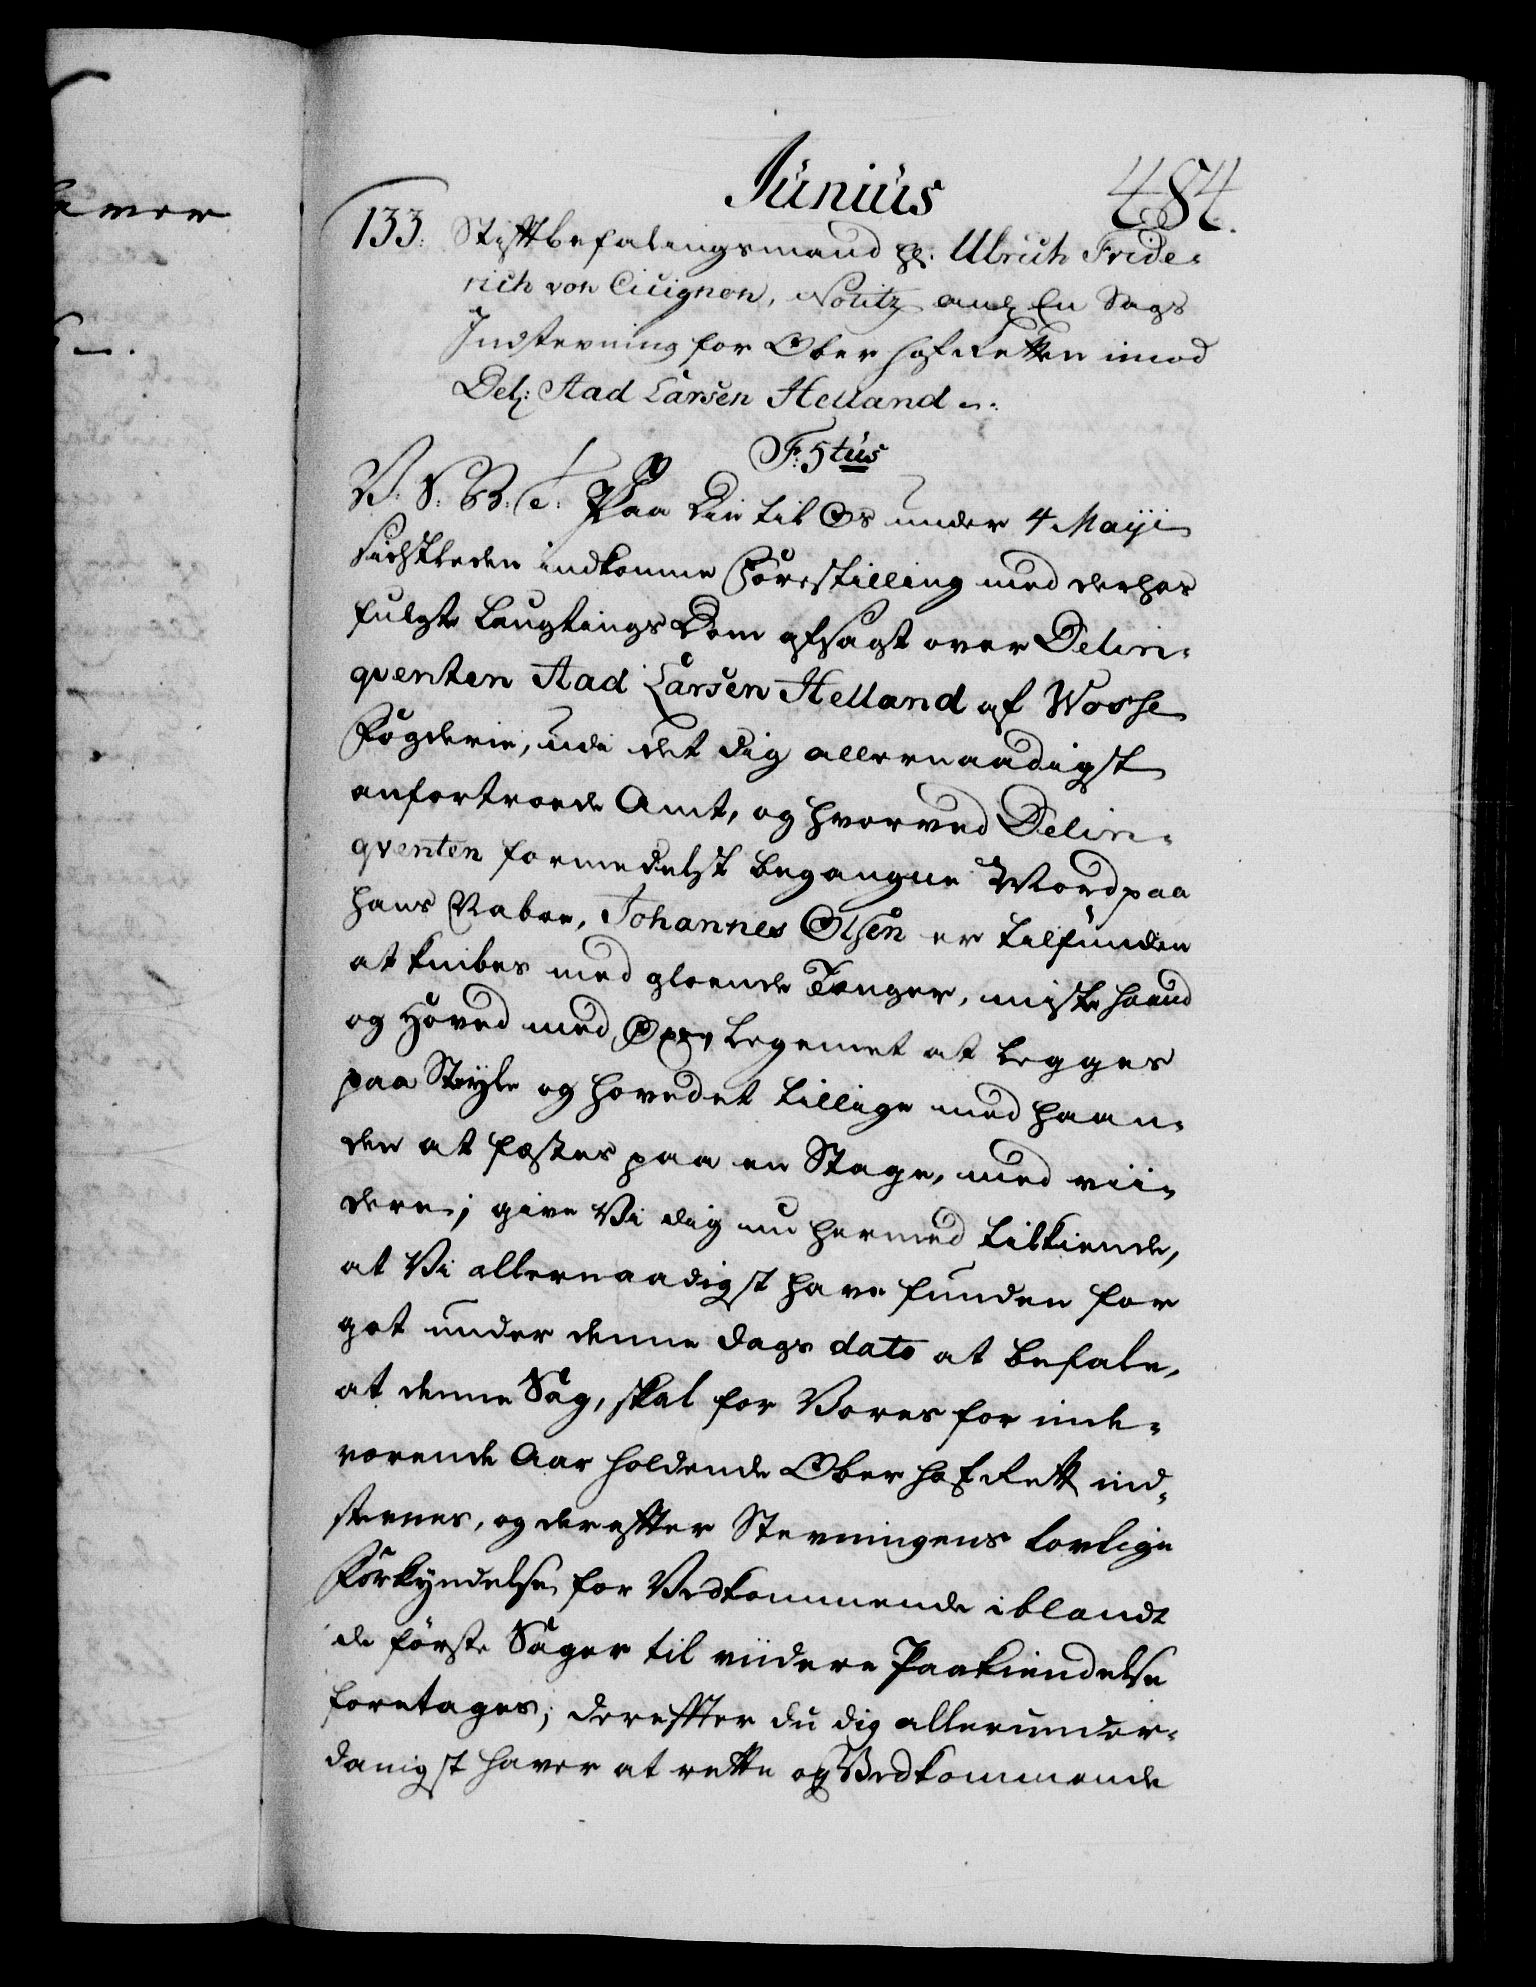 Junius 484.
133. Stiftbefalingsmand Hr: Ulrich Fride-
rich von Cicignon, Notitz ang: En Sags
Indstevning for Ober Hof Retten imod
Del: Aad Larsen Helland
F: 5tus
V. S. B. T. Paa Din til Os under 4 Maji
sidstleden indkomne Forestilling med derhos
fulgte Laugtings Dom afsagt over Delin-
qventen Aad Larsen Helland af Wosse
Fogderie, udi det dig allernaadigst
anfortroede Amt, og hvorved Delin-
qventen formedelst begangne Mord paa
hans Naboe, Johannes Olsen er tilfunden
at knibes med gloende Tenger, miste Haand
og Hoved med Øxe, Legemet at legges
paa Steyle og hovedet tillige med Haan-
den at festes paa en Stage, med vii-
dere; give Vi dig nu hermed tilkiende,
at Vi allernaadigst have funden for
got under denne Dags dato at befale,
at denne Sag, skal for Vores for inde-
værende Aar holdende Ober Hof Rett ind-
stevnes, og derefter Stevningens lovlige
Forkyndelse for Vedkommende iblandt
de første Sager til viidere Paakiendelse
foretages; derefter du dig allerunder-
danigst haver at rette og Vedkommende